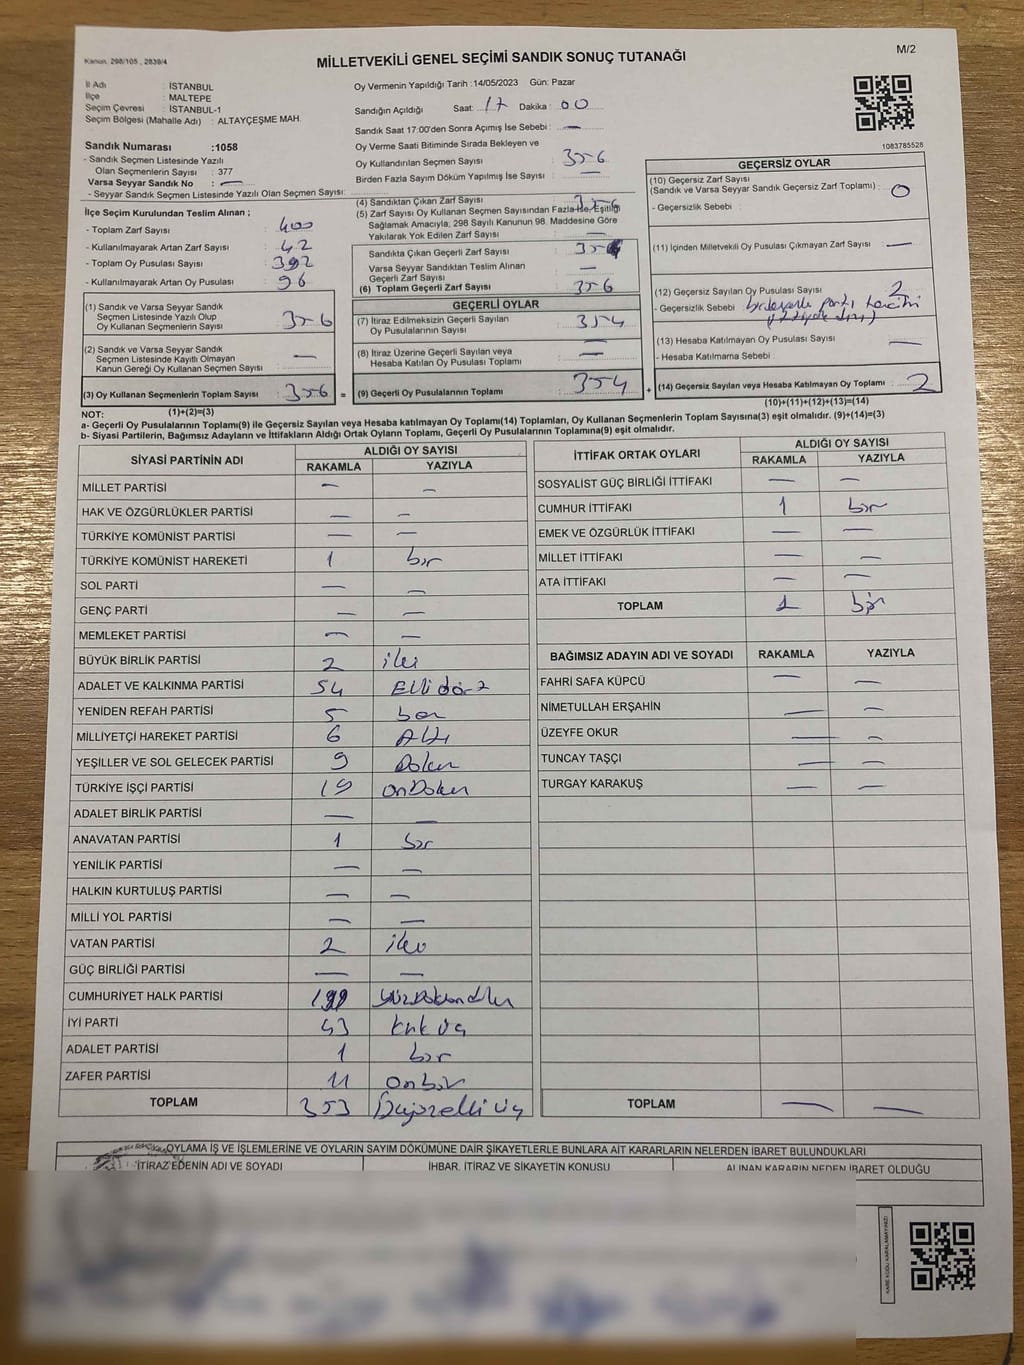 Kanun. 298/105 , 2839/4
MİLLETVEKİLİ GENEL SEÇİMİ SANDIK SONUÇ TUTANAĞI
M/2
İl Adı : İSTANBUL
İlçe : MALTEPE
Seçim Çevresi : İSTANBUL-1
Seçim Bölgesi (Mahalle Adı) : ALTAYÇEŞME MAH.
Sandık Numarası :1058
- Sandık Seçmen Listesinde Yazılı
Olan Seçmenlerin Sayısı : 377
Varsa Seyyar Sandık No : —
- Seyyar Sandık Seçmen Listesinde Yazılı Olan Seçmen Sayısı:
Oy Vermenin Yapıldığı Tarih :14/05/2023 Gün: Pazar
Sandığın Açıldığı Saat: 17 Dakika : 00
Sandık Saat 17:00'den Sonra Açımış İse Sebebi : —
Oy Verme Saati Bitiminde Sırada Bekleyen ve
Oy Kullandırılan Seçmen Sayısı : 356
Birden Fazla Sayım Döküm Yapılmış İse Sayısı : —
1083785528
İlçe Seçim Kurulundan Teslim Alınan ;
- Toplam Zarf Sayısı : 400
- Kullanılmayarak Artan Zarf Sayısı : 42
- Toplam Oy Pusulası Sayısı : 392
- Kullanılmayarak Artan Oy Pusulası : 96
(1) Sandık ve Varsa Seyyar Sandık
Seçmen Listesinde Yazılı Olup
Oy Kullanan Seçmenlerin Sayısı : 356
(2) Sandık ve Varsa Seyyar Sandık
Seçmen Listesinde Kayıtlı Olmayan
Kanun Gereği Oy Kullanan Seçmen Sayısı : —
(3) Oy Kullanan Seçmenlerin Toplam Sayısı : 356 =
(1)+(2)=(3)
(4) Sandıktan Çıkan Zarf Sayısı : 356
(5) Zarf Sayısı Oy Kullanan Seçmen Sayısından Fazla İse, Eşitliği
Sağlamak Amacıyla, 298 Sayılı Kanunun 98. Maddesine Göre
Yakılarak Yok Edilen Zarf Sayısı : —
Sandıkta Çıkan Geçerli Zarf Sayısı : 356
Varsa Seyyar Sandıktan Teslim Alınan
Geçerli Zarf Sayısı : —
(6) Toplam Geçerli Zarf Sayısı : 356
GEÇERLİ OYLAR
(7) İtiraz Edilmeksizin Geçerli Sayılan
Oy Pusulalarının Sayısı : 354
(8) İtiraz Üzerine Geçerli Sayılan veya
Hesaba Katılan Oy Pusulası Toplamı : —
(9) Geçerli Oy Pusulalarının Toplamı : 354 +
GEÇERSİZ OYLAR
(10) Geçersiz Zarf Sayısı
(Sandık ve Varsa Seyyar Sandık Geçersiz Zarf Toplamı) : 0
- Geçersizlik Sebebi :
(11) İçinden Milletvekili Oy Pusulası Çıkmayan Zarf Sayısı : —
(12) Geçersiz Sayılan Oy Pusulası Sayısı : 2
- Geçersizlik Sebebi : parti tercihi
(13) Hesaba Katılmayan Oy Pusulası Sayısı : —
- Hesaba Katılmama Sebebi :
(14) Geçersiz Sayılan veya Hesaba Katılmayan Oy Toplamı : 2
(10)+(11)+(12)+(13)=(14)
NOT:
a- Geçerli Oy Pusulaların Toplamı(9) ile Geçersiz Sayılan veya Hesaba katılmayan Oy Toplamı(14) Toplamları, Oy Kullanan Seçmenlerin Toplam Sayısına(3) eşit olmalıdır. (9)+(14)=(3)
b- Siyasi Partilerin, Bağımsız Adayların ve İttifakların Aldığı Ortak Oyların Toplamı, Geçerli Oy Pusulalarının Toplamına(9) eşit olmalıdır.
SİYASİ PARTİNİN ADI ALDIĞI OY SAYISI
RAKAMLA YAZIYLA
MİLLET PARTİSİ — —
HAK VE ÖZGÜRLÜKLER PARTİSİ — —
TÜRKİYE KOMÜNİST PARTİSİ — —
TÜRKİYE KOMÜNİST HAREKETİ 1 bir
SOL PARTİ — —
GENÇ PARTİ — —
MEMLEKET PARTİSİ — —
BÜYÜK BİRLİK PARTİSİ 2 iki
ADALET VE KALKINMA PARTİSİ 54 Elli dört
YENİDEN REFAH PARTİSİ 5 beş
MİLLİYETÇİ HAREKET PARTİSİ 6 Altı
YEŞİLLER VE SOL GELECEK PARTİSİ 9 Dokuz
TÜRKİYE İŞÇİ PARTİSİ 19 OnDokuz
ADALET BİRLİK PARTİSİ — —
ANAVATAN PARTİSİ 1 bir
YENİLİK PARTİSİ — —
HALKIN KURTULUŞ PARTİSİ — —
MİLLİ YOL PARTİSİ — —
VATAN PARTİSİ 2 iki
GÜÇ BİRLİĞİ PARTİSİ — —
CUMHURİYET HALK PARTİSİ 199 YüzDoksandokuz
İYİ PARTİ 43 Kırk üç
ADALET PARTİSİ 1 bir
ZAFER PARTİSİ 11 Onbir
TOPLAM 353 Üçyüzelli üç
İTTİFAK ORTAK OYLARI ALDIĞI OY SAYISI
RAKAMLA YAZIYLA
SOSYALİST GÜÇ BİRLİĞİ İTTİFAKI — —
CUMHUR İTTİFAKI 1 bir
EMEK VE ÖZGÜRLÜK İTTİFAKI — —
MİLLET İTTİFAKI — —
ATA İTTİFAKI — —
TOPLAM 1 bir
BAĞIMSIZ ADAYIN ADI VE SOYADI RAKAMLA YAZIYLA
FAHRİ SAFA KÜPCÜ — —
NİMETULLAH ERŞAHİN — —
ÜZEYFE OKUR — —
TUNCAY TAŞÇI — —
TURGAY KARAKUŞ — —
TOPLAM — —
OYLAMA İŞ VE İŞLEMLERİNE VE OYLARIN SAYIM DÖKÜMÜNE DAİR ŞİKAYETLERLE BUNLARA AİT KARARLARIN NELERDEN İBARET BULUNDUKLARI
İTİRAZ EDENİN ADI VE SOYADI İHBAR, İTİRAZ VE ŞİKAYETİN KONUSU ALINAN KARARIN NEDEN İBARET OLDUĞU
KARE KODU KARALAMAYINIZ!